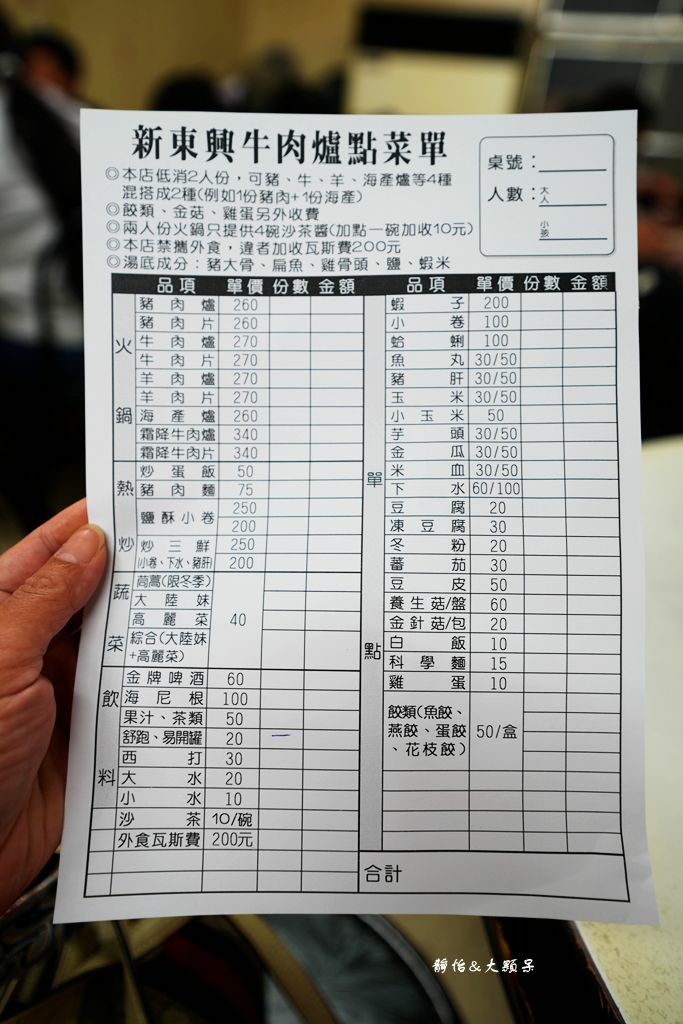 新東興牛肉爐點菜單
桌號：
人數：大人
小孩
◎本店低消2人份，可豬、牛、羊、海產爐等4種
混搭成2種(例如1份豬肉+1份海產)
◎餃類、金菇、雞蛋另外收費
◎兩人份火鍋只提供4碗沙茶醬(加點一碗加收10元)
◎本店禁攜外食，違者加收瓦斯費200元
◎湯底成分：豬大骨、扁魚、雞骨頭、鹽、蝦米
品項 單價 份數 金額
火鍋
豬肉爐 260
豬肉片 260
牛肉爐 270
牛肉片 270
羊肉爐 270
羊肉片 270
海產爐 260
霜降牛肉爐 340
霜降牛肉片 340
熱炒
炒蛋飯 50
豬肉麵 75
鹽酥小卷 250
200
炒三鮮 250
(小卷、下水、豬肝) 200
蔬菜
茼蒿(限冬季)
大陸妹
高麗菜 40
綜合(大陸妹
+高麗菜)
飲料
金牌啤酒 60
海尼根 100
果汁、茶類 50
舒跑、易開罐 20
西打 30
大水 20
小水 10
沙茶 10/碗
外食瓦斯費 200元
品項 單價 份數 金額
單點
蝦子 200
小卷 100
蛤蜊 100
魚丸 30/50
豬肝 30/50
玉米 30/50
小玉米 50
芋頭 30/50
金瓜 30/50
米血 30/50
下水 60/100
豆腐 20
凍豆腐 30
冬粉 20
蕃茄 30
豆皮 50
養生菇/盤 60
金針菇/包 20
白飯 10
科學麵 15
雞蛋 10
餃類(魚餃、
燕餃、蛋餃 50/盒
、花枝餃)
合計
靜怡&大顆呆